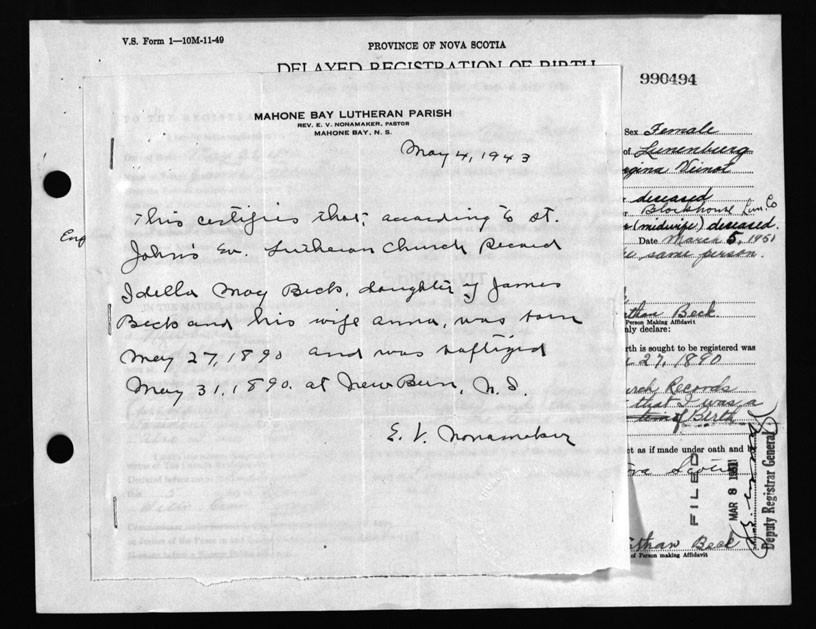 V.S. Form 1—10M-11-49
PROVINCE OF NOVA SCOTIA
DELAYED REGISTRATION OF BIRTH
990494
MAHONE BAY LUTHERAN PARISH
REV. E. V. NONAMAKER, PASTOR
MAHONE BAY, N. S.
May 4, 1943
This certifies that, according to St.
John's Ev. Lutheran Church Record
Idella May Beck, daughter of James
Beck and his wife Anna, was born
May 27, 1890 and was baptized
May 31, 1890. at New Burn, N.S.
E. V. Nonamaker
Sex Female
of Lunenburg
gina Veinot
deceased
Blockhouse Lun. Co
(midwife) deceased.
Date March 5, 1951
same person.
than Beck
Person Making Affidavit
nly declare:
rth is sought to be registered was
27, 1890
urch Records
that I was a
of Birth
ct as if made under oath and
ova Scotia
FILED
MAR 8 1951
Deputy Registrar General
than Beck
of Person making Affidavit